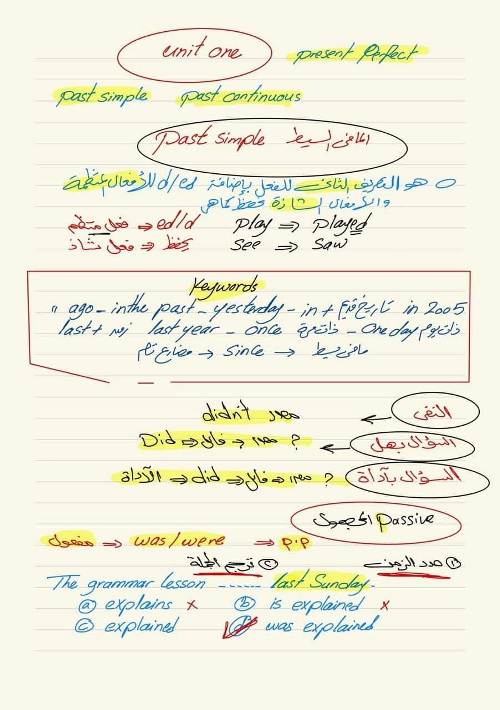 unit one
present Perfect
past simple past continuous
past simple الماضى البسيط
هو التصريف الثانى للفعل بإضافة d/ed للأفعال المنتظمة
والأفعال الشاذة تحفظ كما هى
play ⇒ played ed/d ⇐ فعل منتظم
see ⇒ saw يحفظ ⇐ فعل شاذ
Keywords
ago - in the past - yesterday - in + تاريخ in 2005
last + زمن last year - once ذات مرة - One day ذات يوم
ماضى بسيط → since → مضارع تام
النفى ← didn't مصدر
السؤال بهل ← Did → فاعل → مصدر ?
السؤال بأداة الأداة → did → فاعل → مصدر ?
المجهول passive
مفعول ⇒ was/were ⇒ p.p
① حدد الزمن ② ترجم الجملة
The grammar lesson ------ last Sunday.
ⓐ explains x ⓑ is explained x
ⓒ explained ⓓ was explained